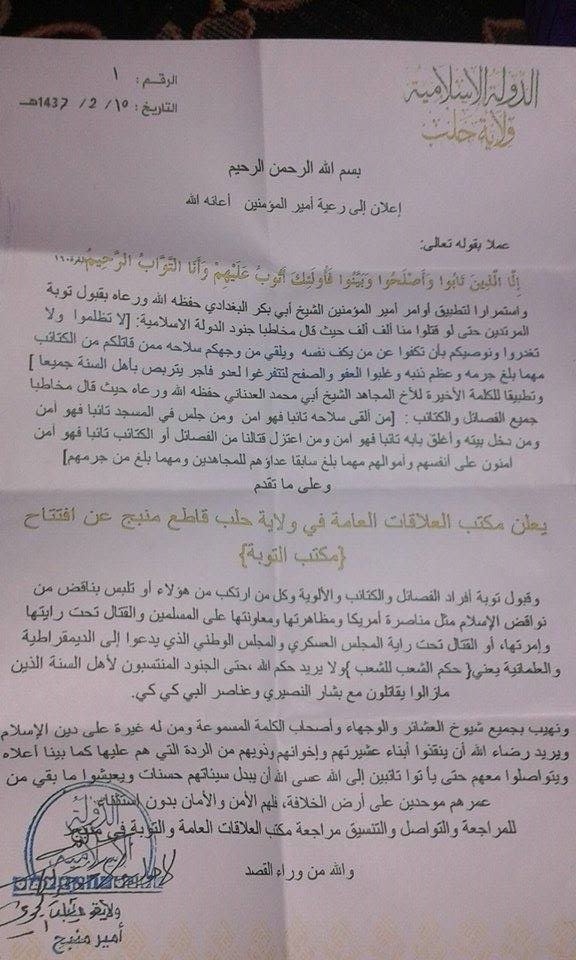 الدولة الإسلامية
ولاية حلب
الرقم: ١
التاريخ: ١٥ / 2 / 1437هـ
بسم الله الرحمن الرحيم
إعلان إلى رعية أمير المؤمنين أعانه الله
عملا بقوله تعالى:
إِلَّا الَّذِينَ تَابُوا وَأَصْلَحُوا وَبَيَّنُوا فَأُولَئِكَ أَتُوبُ عَلَيْهِمْ وَأَنَا التَّوَّابُ الرَّحِيمُ
واستمرارا لتطبيق أوامر أمير المؤمنين الشيخ أبي بكر البغدادي حفظه الله ورعاه بقبول توبة
المرتدين حتى لو قتلوا منا ألف ألف حيث قال مخاطبا جنود الدولة الاسلامية: [لا تظلموا ولا
تغدروا ونوصيكم بأن تكفوا عن من يكف نفسه ويلقي من وجهكم سلاحه ممن قاتلكم من الكتائب
مهما بلغ جرمه وعظم ذنبه وغلبوا العفو والصفح لتتفرغوا لعدو فاجر يتربص بأهل السنة جميعا ]
وتطبيقا للكلمة الأخيرة للأخ المجاهد الشيخ أبي محمد العدناني حفظه الله ورعاه حيث قال مخاطبا
جميع الفصائل والكتائب : [من ألقى سلاحه تائبا فهو امن ومن جلس في المسجد تائبا فهو أمن
ومن دخل بيته وأغلق بابه تائبا فهو أمن ومن اعتزل قتالنا من الفصائل أو الكتائب تائبا فهو أمن
أمنون على أنفسهم وأموالهم مهما بلغ سابقا عداؤهم للمجاهدين ومهما بلغ من جرمهم]
وعلى ما تقدم
يعلن مكتب العلاقات العامة في ولاية حلب قاطع منبج عن افتتاح
{مكتب التوبة}
وقبول توبة أفراد الفصائل والكتائب والألوية وكل من ارتكب من هؤلاء أو تلبس بناقض من
نواقض الإسلام مثل مناصرة أمريكا ومظاهرتها ومعاونتها على المسلمين والقتال تحت رايتها
وإمرتها، أو القتال تحت راية المجلس العسكري والمجلس الوطني الذي يدعوا إلى الديمقراطية
والعلمانية يعني{ حكم الشعب للشعب }ولا يريد حكم الله ،حتى الجنود المنتسبون لأهل السنة الذين
مازالوا يقاتلون مع بشار النصيري وعناصر البي كي كي.
ونهيب بجميع شيوخ العشائر والوجهاء وأصحاب الكلمة المسموعة ومن له غيرة على دين الإسلام
ويريد رضاء الله أن ينقذوا أبناء عشيرتهم وإخوانهم وذويهم من الردة التي هم عليها كما بينا أعلاه
ويتواصلوا معهم حتى يأتوا تائبين إلى الله عسى الله أن يبدل سيئاتهم حسنات ويعيشوا ما بقي من
عمرهم موحدين على أرض الخلافة، فلهم الأمن والأمان بدون استثناء.
للمراجعة والتواصل والتنسيق مراجعة مكتب العلاقات العامة والتوبة في منبج
والله من وراء القصد
الدولة
الإسلامية
أمير منبج